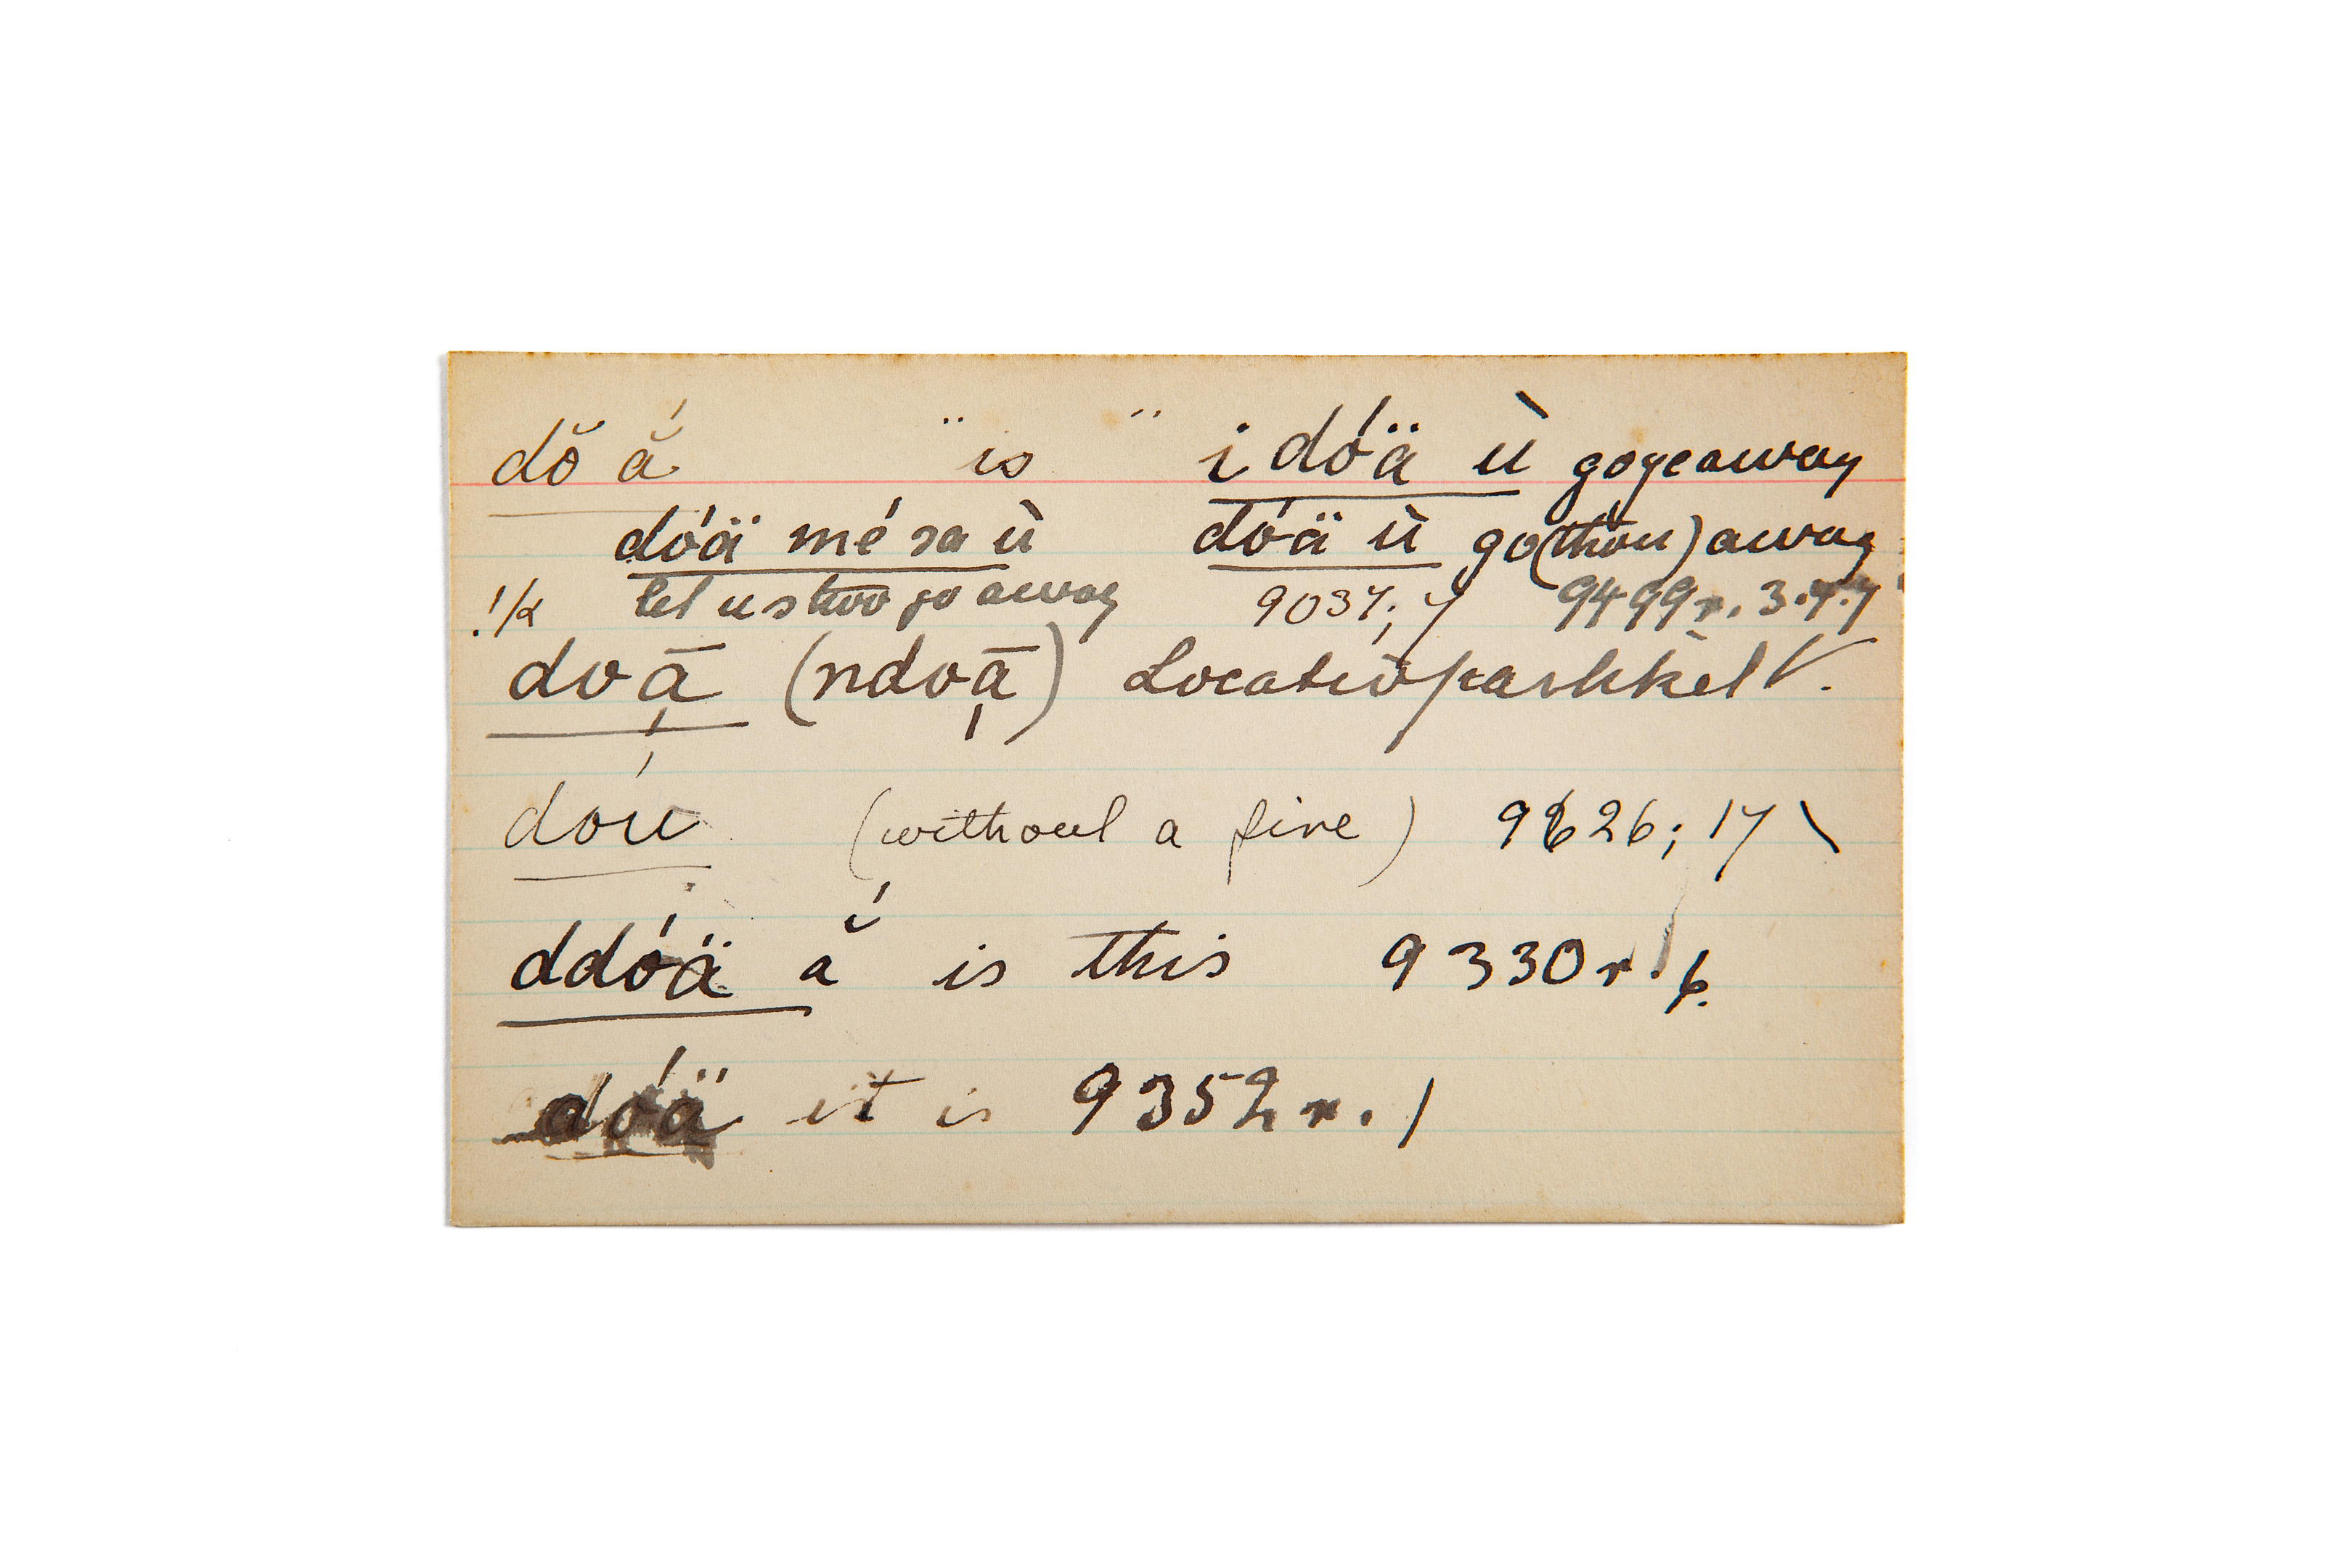 dŏ ắ " is " i dóä ù go ye away
dóä mé sa ù dóä ù go (thou) away
!/k let us two go away 9037; 7 9499r. 3.4.7
doā̩ (ndoā̩) Locativpartikel V.
doú (without a fire) 9626; 17 \
ddóä ắ is this 9330r. 6.
dóä it is 9352r. 1